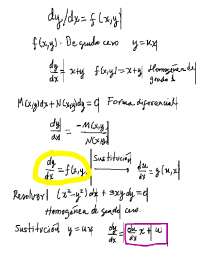 dy/dx = f(x,y)
f(x,y). De grado cero y=ux
dy/dx = x+y f(x,y)=x+y Homogénea de grado 1
M(x,y)dx + N(x,y)dy = 0 Forma diferencial
dy/dx = -M(x,y)/N(x,y)
dy/dx = f(x,y) Sustitución du/dx = g(u,x)
Resolver (x²-y²)dx + 2xydy = 0
Homogénea de grado cero.
Sustitución y=ux dy/dx = du/dx x + u